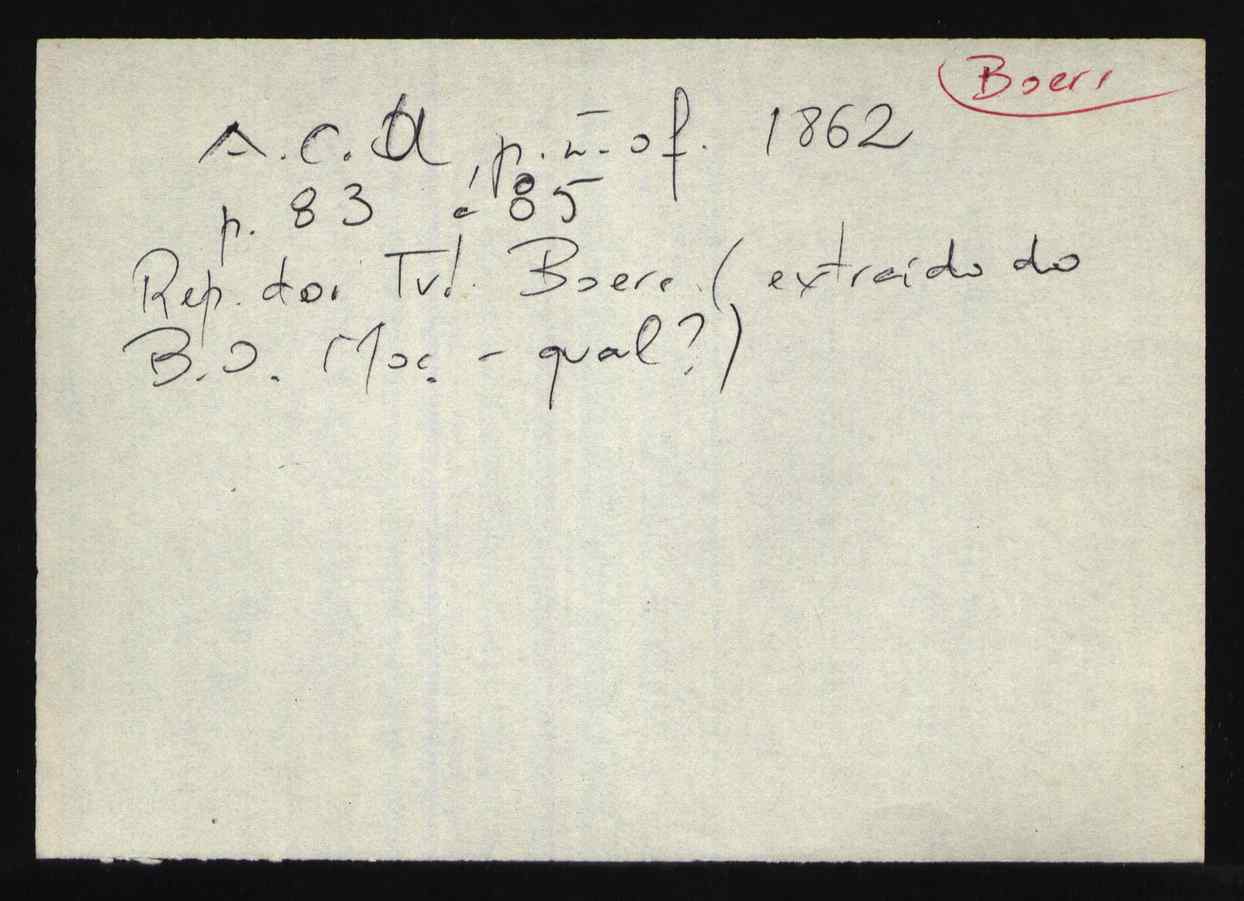 Boers
A.C.U, p. n. of. 1862
p. 83 a 85
Rep. dos Tvl. Boers (extraído do
B.O. Moç. - qual?)